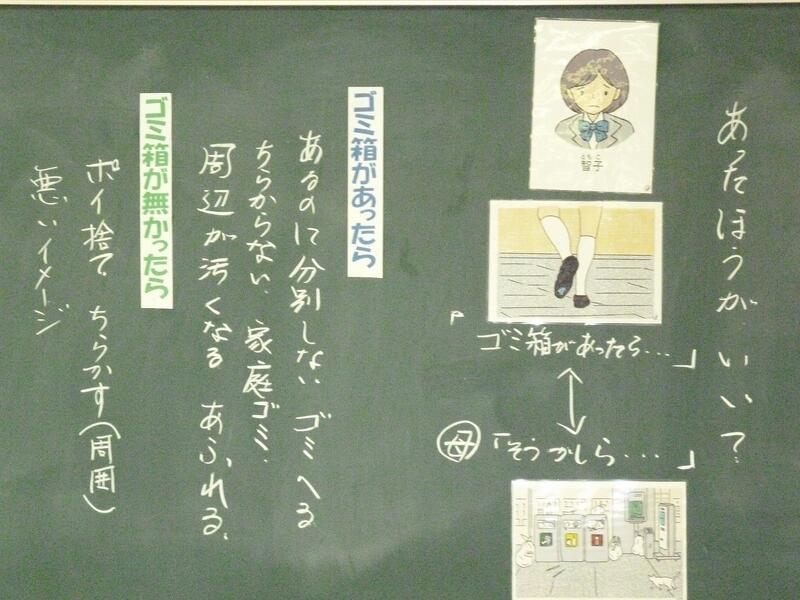 あったほうが、いい?
智子
ともこ
「ゴミ箱があったら…」
母「そうかしら…」
ゴミ箱があったら
あるのに分別しない ゴミへる
ちらからない、家庭ゴミ、
周辺が汚くなる あふれる、
ゴミ箱が無かったら
ポイ捨て ちらかす(周囲)
悪いイメージ